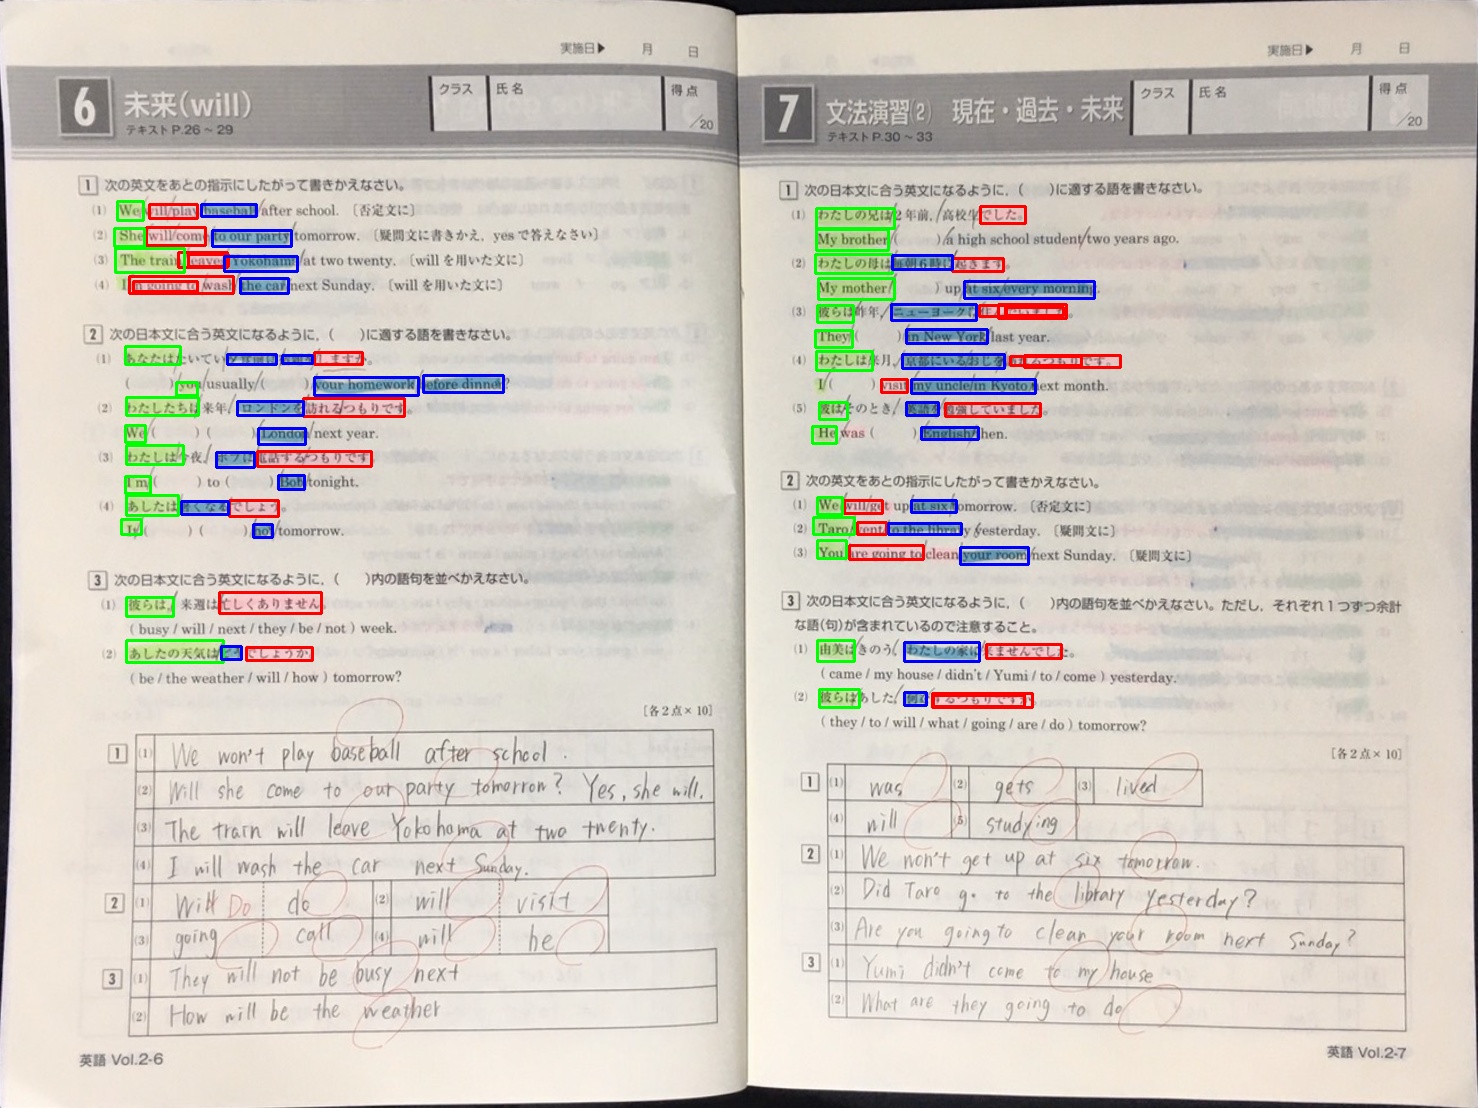 実施日▶ 月 日
6 未来(will)
テキストP.26～29
クラス 氏名 得点 /20
1 次の英文をあとの指示にしたがって書きかえなさい。
(1) We will/play baseball/after school. 〔否定文に〕
(2) She will/come to our party/tomorrow. 〔疑問文に書きかえ，yesで答えなさい〕
(3) The train leaves Yokohama/at two twenty. 〔willを用いた文に〕
(4) I'm going to wash the car/next Sunday. 〔willを用いた文に〕
2 次の日本文に合う英文になるように，( )に適する語を書きなさい。
(1) あなたはたいてい夕食前に宿題をしますか。
( ) you/usually/( ) your homework before dinner?
(2) わたしたちは来年，ロンドンを訪れるつもりです。
We ( ) ( ) London/next year.
(3) わたしは今夜，ボブに電話するつもりです。
I'm ( ) to ( ) Bob/tonight.
(4) あしたは暑くなるでしょう。
It ( ) ( ) hot/tomorrow.
3 次の日本文に合う英文になるように，( )内の語句を並べかえなさい。
(1) 彼らは，来週は忙しくありません。
( busy / will / next / they / be / not ) week.
(2) あしたの天気はどうでしょうか。
( be / the weather / will / how ) tomorrow?
[各2点×10]
1 (1) We won't play baseball after school.
(2) Will she come to our party tomorrow? Yes, she will.
(3) The train will leave Yokohama at two twenty.
(4) I will wash the car next Sunday.
2 (1) Will Do do (2) will visit
(3) going call (4) will be
3 (1) They will not be busy next
(2) How will be the weather
英語 Vol.2-6
実施日▶ 月 日
7 文法演習(2) 現在・過去・未来
テキストP.30～33
クラス 氏名 得点 /20
1 次の日本文に合う英文になるように，( )に適する語を書きなさい。
(1) わたしの兄は/2年前，/高校生でした。
My brother/( )/a high school student/two years ago.
(2) わたしの母は毎朝6時に起きます。
My mother/( ) up/at six/every morning.
(3) 彼らは昨年，ニューヨークに住んでいました。
They ( ) in New York/last year.
(4) わたしは来月，京都にいるおじを訪ねるつもりです。
I ( ) visit my uncle/in Kyoto/next month.
(5) 彼はそのとき，英語を勉強していました。
He was ( ) English/then.
2 次の英文をあとの指示にしたがって書きかえなさい。
(1) We will/get up at six/tomorrow. 〔否定文に〕
(2) Taro/went/to the library yesterday. 〔疑問文に〕
(3) You are going to clean your room/next Sunday. 〔疑問文に〕
3 次の日本文に合う英文になるように，( )内の語句を並べかえなさい。ただし，それぞれ1つずつ余計
な語(句)が含まれているので注意すること。
(1) 由美はきのう，わたしの家に来ませんでした。
( came / my house / didn't / Yumi / to / come ) yesterday.
(2) 彼らはあした，何をするつもりですか。
( they / to / will / what / going / are / do ) tomorrow?
[各2点×10]
1 (1) was (2) gets (3) lived
(4) will (5) studying
2 (1) We won't get up at six tomorrow.
(2) Did Taro go to the library yesterday?
(3) Are you going to clean your room next Sunday?
3 (1) Yumi didn't come to my house
(2) What are they going to do
英語 Vol.2-7